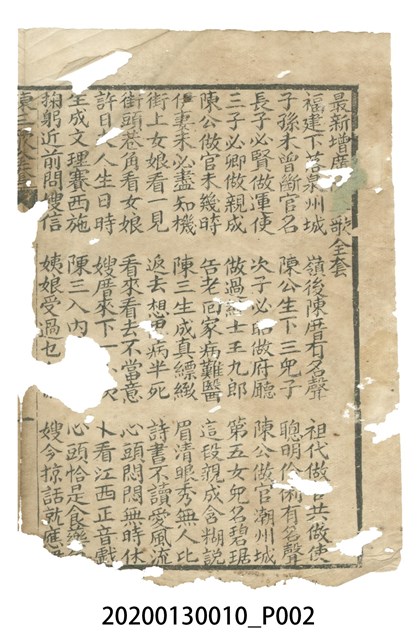 最新增廣歌全套
福建下若泉州城　嶺後陳厝有名聲　祖代做官共做使
子孫未曾斷官名　陳公生下三兒子　聰明伶俐有名聲
長子必賢做運使　次子必昭做府廳　陳公做官潮州城
三子必卿做親成　做過士王九郎　第五女兒名碧琚
陳公做官未幾時　告老回家病難醫　這段親成含糊說
伊妻未必盡知機　陳三生成真縹緻　眉清眼秀無人比
街上女娘看一見　返去想思病半死　詩書不讀愛風流
街頭巷角看女娘　看來看去不當意　心頭悶悶無時休
許日共人生日時　嫂厝來下一　卜看江西正音戲
生成文理賽西施　陳三入內　心頭恰是食藥
掬躬近前問嫂信　姨娘受過乜　嫂今掠話就應
陳三
20200130010_P002